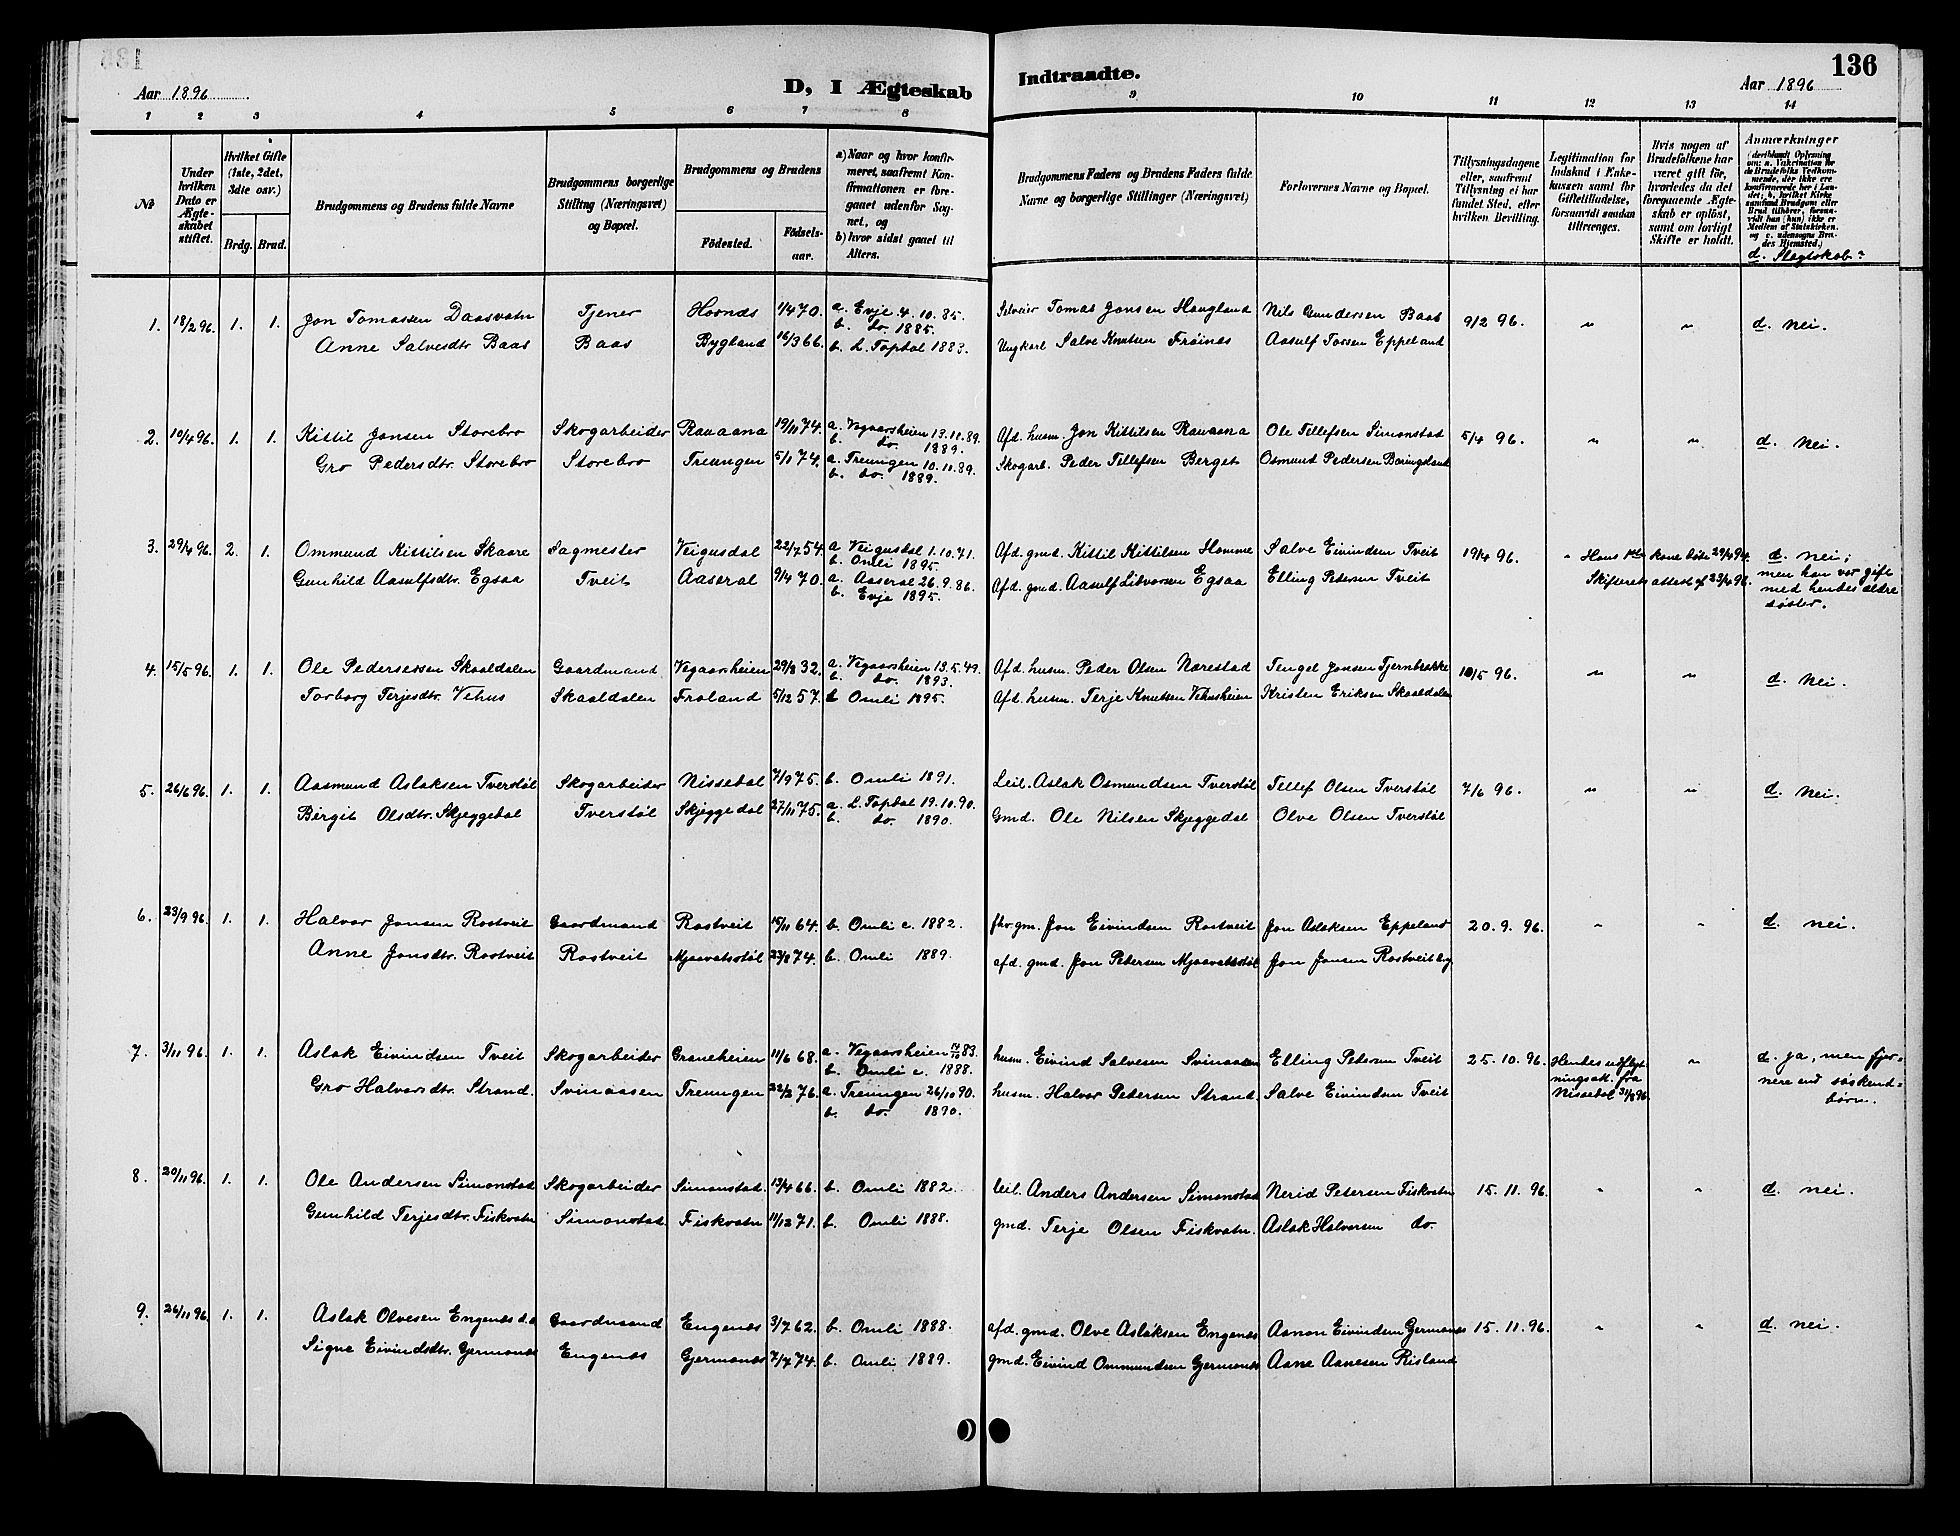 136
Aar 1896
D, I Ægteskab
Indtraadte.
Aar 1896
1 2 3 4 5 6 7 8 9 10 11 12 13 14
No
Under hvilken Dato er Ægteskabet stiftet.
Hvilket Gifte (1ste, 2det, 3die osv.)
Brdg. Brud.
Brudgommens og Brudens fulde Navne
Brudgommens borgerlige Stilling (Næringsvei) og Bopæl.
Brudgommens og Brudens
Födested. Födsels-aar.
a) Naar og hvor konfirmeret, saafremt Konfirmationen er foregaaet udenfor Sognet, og
b) hvor sidst gaaet til Alters.
Brudgommens Faders og Brudens Faders fulde Navne og borgerlige Stillinger (Næringsvei)
Forlovernes Navne og Bopæl.
Tillysningsdagene eller, saafremt Tillysning ei har fundet Sted, efter hvilken Bevilling.
Legitimation for Indskud i Enkekassen samt for Giftetilladelse, forsaavidt saadan tiltrænges.
Hvis nogen af Brudefolkene har været gift för, hvorledes da det foregaaende Ægteskab er oplöst, samt om lovligt Skifte er holdt.
Anmærkninger (deriblandt Oplysning om: a. Vakcination for de Brudefolks Vedkommende, der ikke ere konfirmerede her i Landet; b. hvilket Kirkesamfund Brudgom eller Brud tilhörer, forsaavidt han (hun) ikke er Medlem af Statskirken, og c. udensogns Brudes Hjemsted.)
d. Slegtskab?
1. 18/2 96. 1. 1. Jon Tomassen Daasvatn Tjener Hornæs 1/4 70. a. Evje 4.10.85. b. do. 1885. Selveier Tomas Jonsen Haugland Nils Gundersen Baas 9/2 96. " " d. nei.
Anne Salvesdtr. Baas Baas Bygland 16/3 66. b. H. Topdal 1883. Ungkarl Salve Knutsen Fröines Aasulf Torsen Eppeland
2. 10/4 96. 1. 1. Kittil Jonsen Storebro Skogarbeider Rauaana 19/11 74. a. Vegaarsheien 13.11.89. b. do. 1889. Afd. husm. Jon Kittilsen Rauaana Ole Tellefsen Simonstad 5/4 96. " " d. nei.
Gro Pedersdtr. Storebro Storebro Treungen 5/1 74. a. Treungen 10.11.89. b. do. 1889. Skogarb. Peder Tellefsen Berget Osmund Pedersen Baringsland
3. 29/4 96. 2. 1. Ommund Kittilsen Skaare Sagmester Veigusdal 22/7 54. a Veigusdal 1.10.71. b. Omli 1895. Afd. gmd. Kittil Kittilsen Homme Salve Eivindsen Tveit 19/4 96. " Hans 1ste kone döde 29/4 94. d. nei;
Gunhild Aasulfsdtr. Egsaa Tveit Aaseral 9/4 70. a. Aaseral 26.9.86. b. Evje 1895. Afd. gmd. Aasulf Litvorsen Egsaa Elling Pedersen Tveit Skifterets attest af 23/4 96. men han var gift med hendes ældre söster.
4. 15/5 96. 1. 1. Ole Pedersen Skaaldalen Gaardmand Vegaarsheien 29/8 32. a. Vegaarsheien 13.5.49. b. do. 1893. Afd. husm. Peder Olsen Narestad Tengel Jonsen Tjernbække 10/5 96. " " d. nei.
Torborg Terjesdtr. Vehus Skaaldalen Froland 5/12 57. b Omli 1895. Afd. husm. Terje Knutsen Vehusheien Kristen Eriksen Skaaldalen
5. 26/6 96. 1. 1. Aasmund Aslaksen Tverstöl Skogarbeider Nissedal 7/9 75. b. Omli 1891. Leil. Aslak Osmundsen Tverstöl Tellef Olsen Tverstöl 7/6 96. " " d. nei.
Birgit Olsdtr. Skjeggedal Tverstöl Skjeggedal 27/11 75. a. H. Topdal 19.10.90. b. do. 1890. Gmd. Ole Nilsen Skjeggedal Olve Olsen Tverstöl
6. 23/9 96. 1. 1. Halvor Jonsen Rostveit Gaardmand Rostveit 15/11 64. b. Omli c. 1882. fhv. gm. Jon Eivindsen Rostveit Jon Aslaksen Eppeland 20.9.96. " " d. nei.
Anne Jonsdtr. Rostveit Rostveit Mjaavatsstöl 23/8 74. b. Omli 1889. afd. gmd. Jon Petersen Mjaavatsstöl Jon Jonsen Rostveit
7. 3/11 96. 1. 1. Aslak Eivindsen Tveit Skogarbeider Graneheien 11/6 68. a. Vegaarsheien 14/10 83. b. Omli c. 1888. husm. Eivind Salvesen Svinaasen Elling Petersen Tveit 25.10.96. Hendes udflytningsatt. fra Nissedal 31/8 96. " d. ja, men fjernere end söskendbörn.
Gro Halvorsdtr. Strand. Svinaasen Treungen 22/2 76. a. Treungen 26/10 90. b. do. 1890. husm. Halvor Pedersen Strand. Salve Eivindsen Tveit
8. 20/11 96. 1. 1. Ole Andersen Simonstad Skogarbeider Simonstad. 13/4 66. b. Omli 1882. leil. Anders Andersen Simonstad Nerid Petersen Fiskvatn 15.11.96. " " d. nei.
Gunhild Terjesdtr. Fiskvatn Simonstad Fiskvatn 11/12 71. b. Omli 1888. gmd. Terje Olsen Fiskvatn. Aslak Halvorsen do.
9. 26/11 96. 1. 1. Aslak Olvesen Engenæs Gaardmand Engenæs 3/7 62. b. Omli 1888. afd. gmd. Olve Aslaksen Engenæs Aanon Eivindsen Gjermonæs 15.11.96. " " d. nei.
Signe Eivindsdtr. Gjermonæs Engenæs Gjermonæs 7/4 74. b. Omli 1889. gmd. Eivind Ommundsen Gjermonæs Aane Aanesen Risland